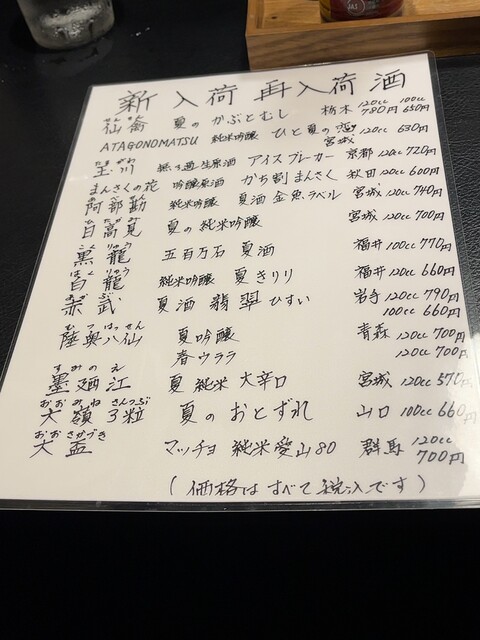 新入荷 再入荷 酒
せんきん
仙禽 夏の かぶとむし 栃木 120cc 780円 100cc 650円
ATAGONOMATSU 純米吟醸 ひと夏の恋 宮城 120cc 630円
たまがわ
玉川 無ろ過生原酒 アイスブレーカー 京都 120cc 720円
まんさくの花 吟醸原酒 かち割まんさく 秋田 120cc 600円
あべかん
阿部勘 純米吟醸 夏酒 金魚ラベル 宮城 120cc 740円
ひたかみ
日高見 夏の純米吟醸 宮城 120cc 700円
こくりゅう
黒龍 五百万石 夏酒 福井 100cc 770円
はくりゅう
白龍 純米吟醸 夏きりり 福井 120cc 660円
あかぶ
赤武 夏酒 翡翠 ひすい 岩手 120cc 790円
100cc 660円
むつはっせん
陸奥八仙 夏吟醸 青森 120cc 700円
春ウララ 120cc 700円
すみのえ
墨廼江 夏 純米 大辛口 宮城 120cc 570円
おおみねさんつぶ
大嶺3粒 夏の おとずれ 山口 100cc 660円
おおさかづき
大盃 マッチョ 純米愛山80 群馬 120cc 700円
(価格は すべて 税込です)